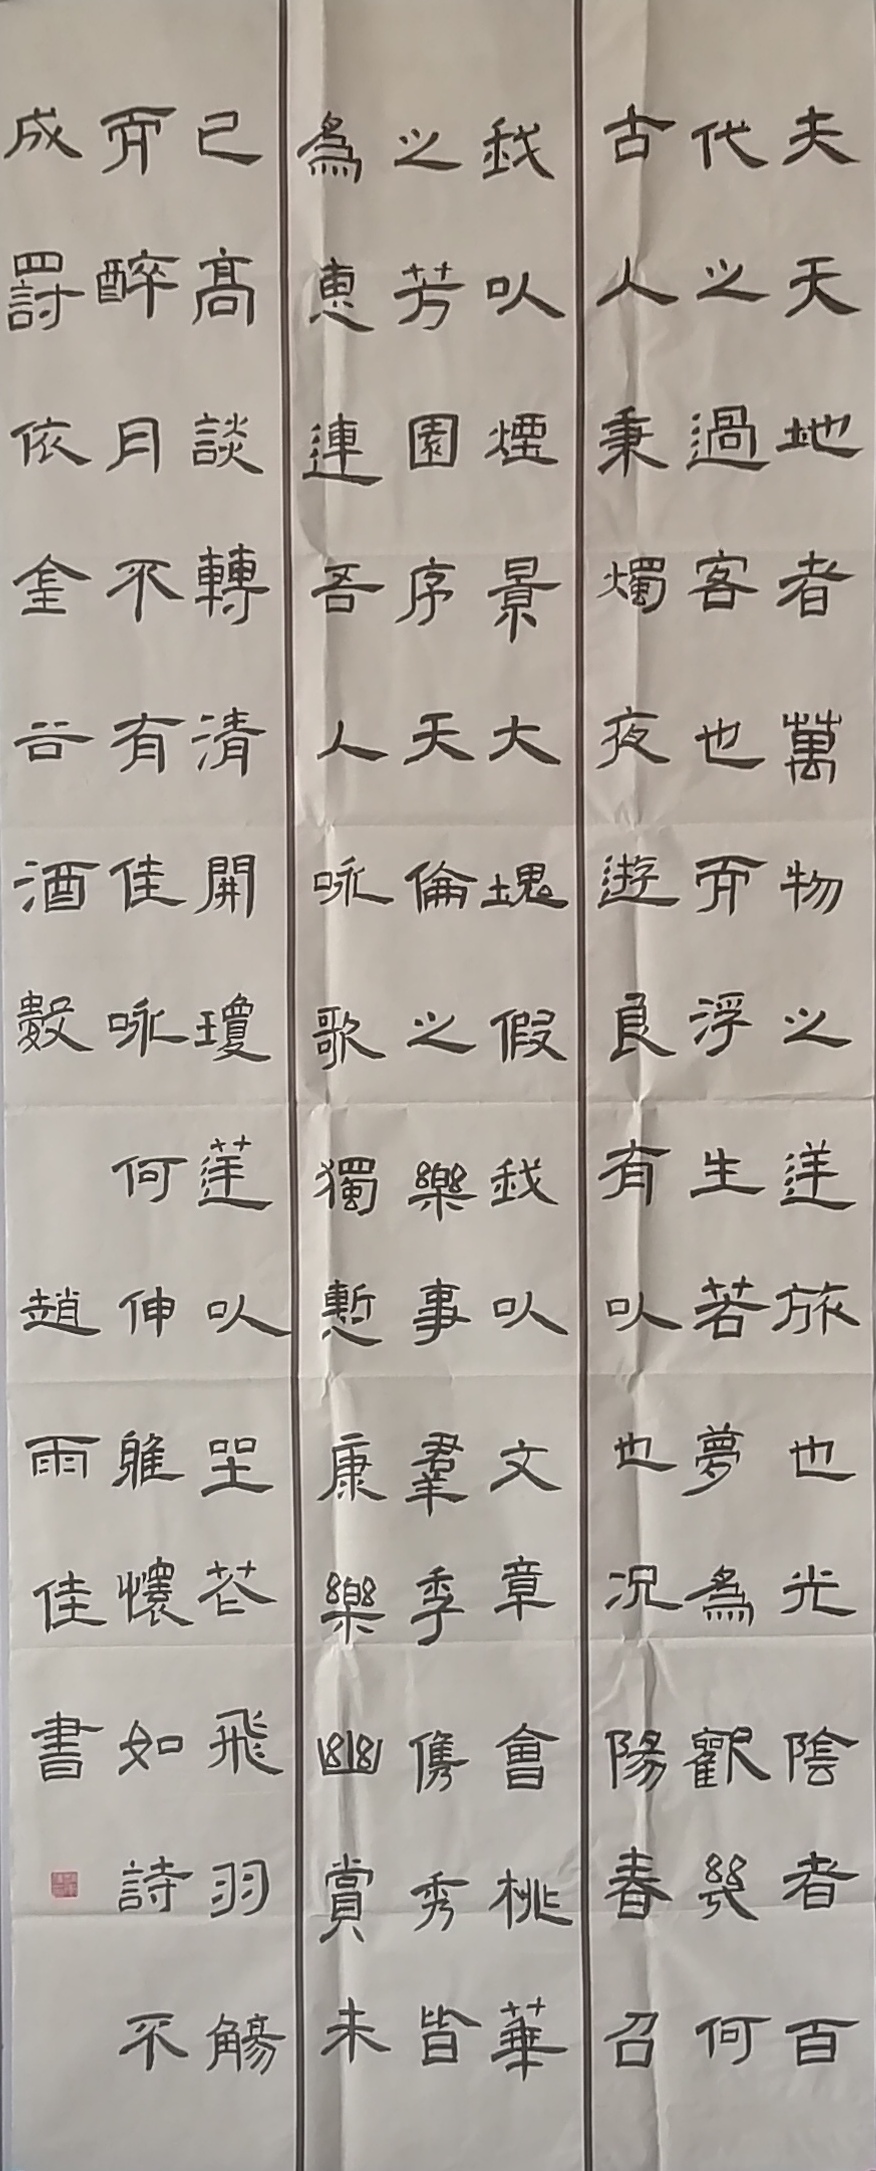 夫天地者萬物之逆旅也光陰者百
代之過客也而浮生若夢爲歡幾何
古人秉燭夜遊良有以也况陽春召
我以煙景大塊假我以文章會桃華
之芳園序天倫之樂事羣季儁秀皆
爲惠連吾人咏歌獨慙康樂幽賞未
已高談轉清開瓊筵以坐花飛羽觴
而醉月不有佳咏何伸雅懷如詩不
成罰依金谷酒數
趙雨佳書